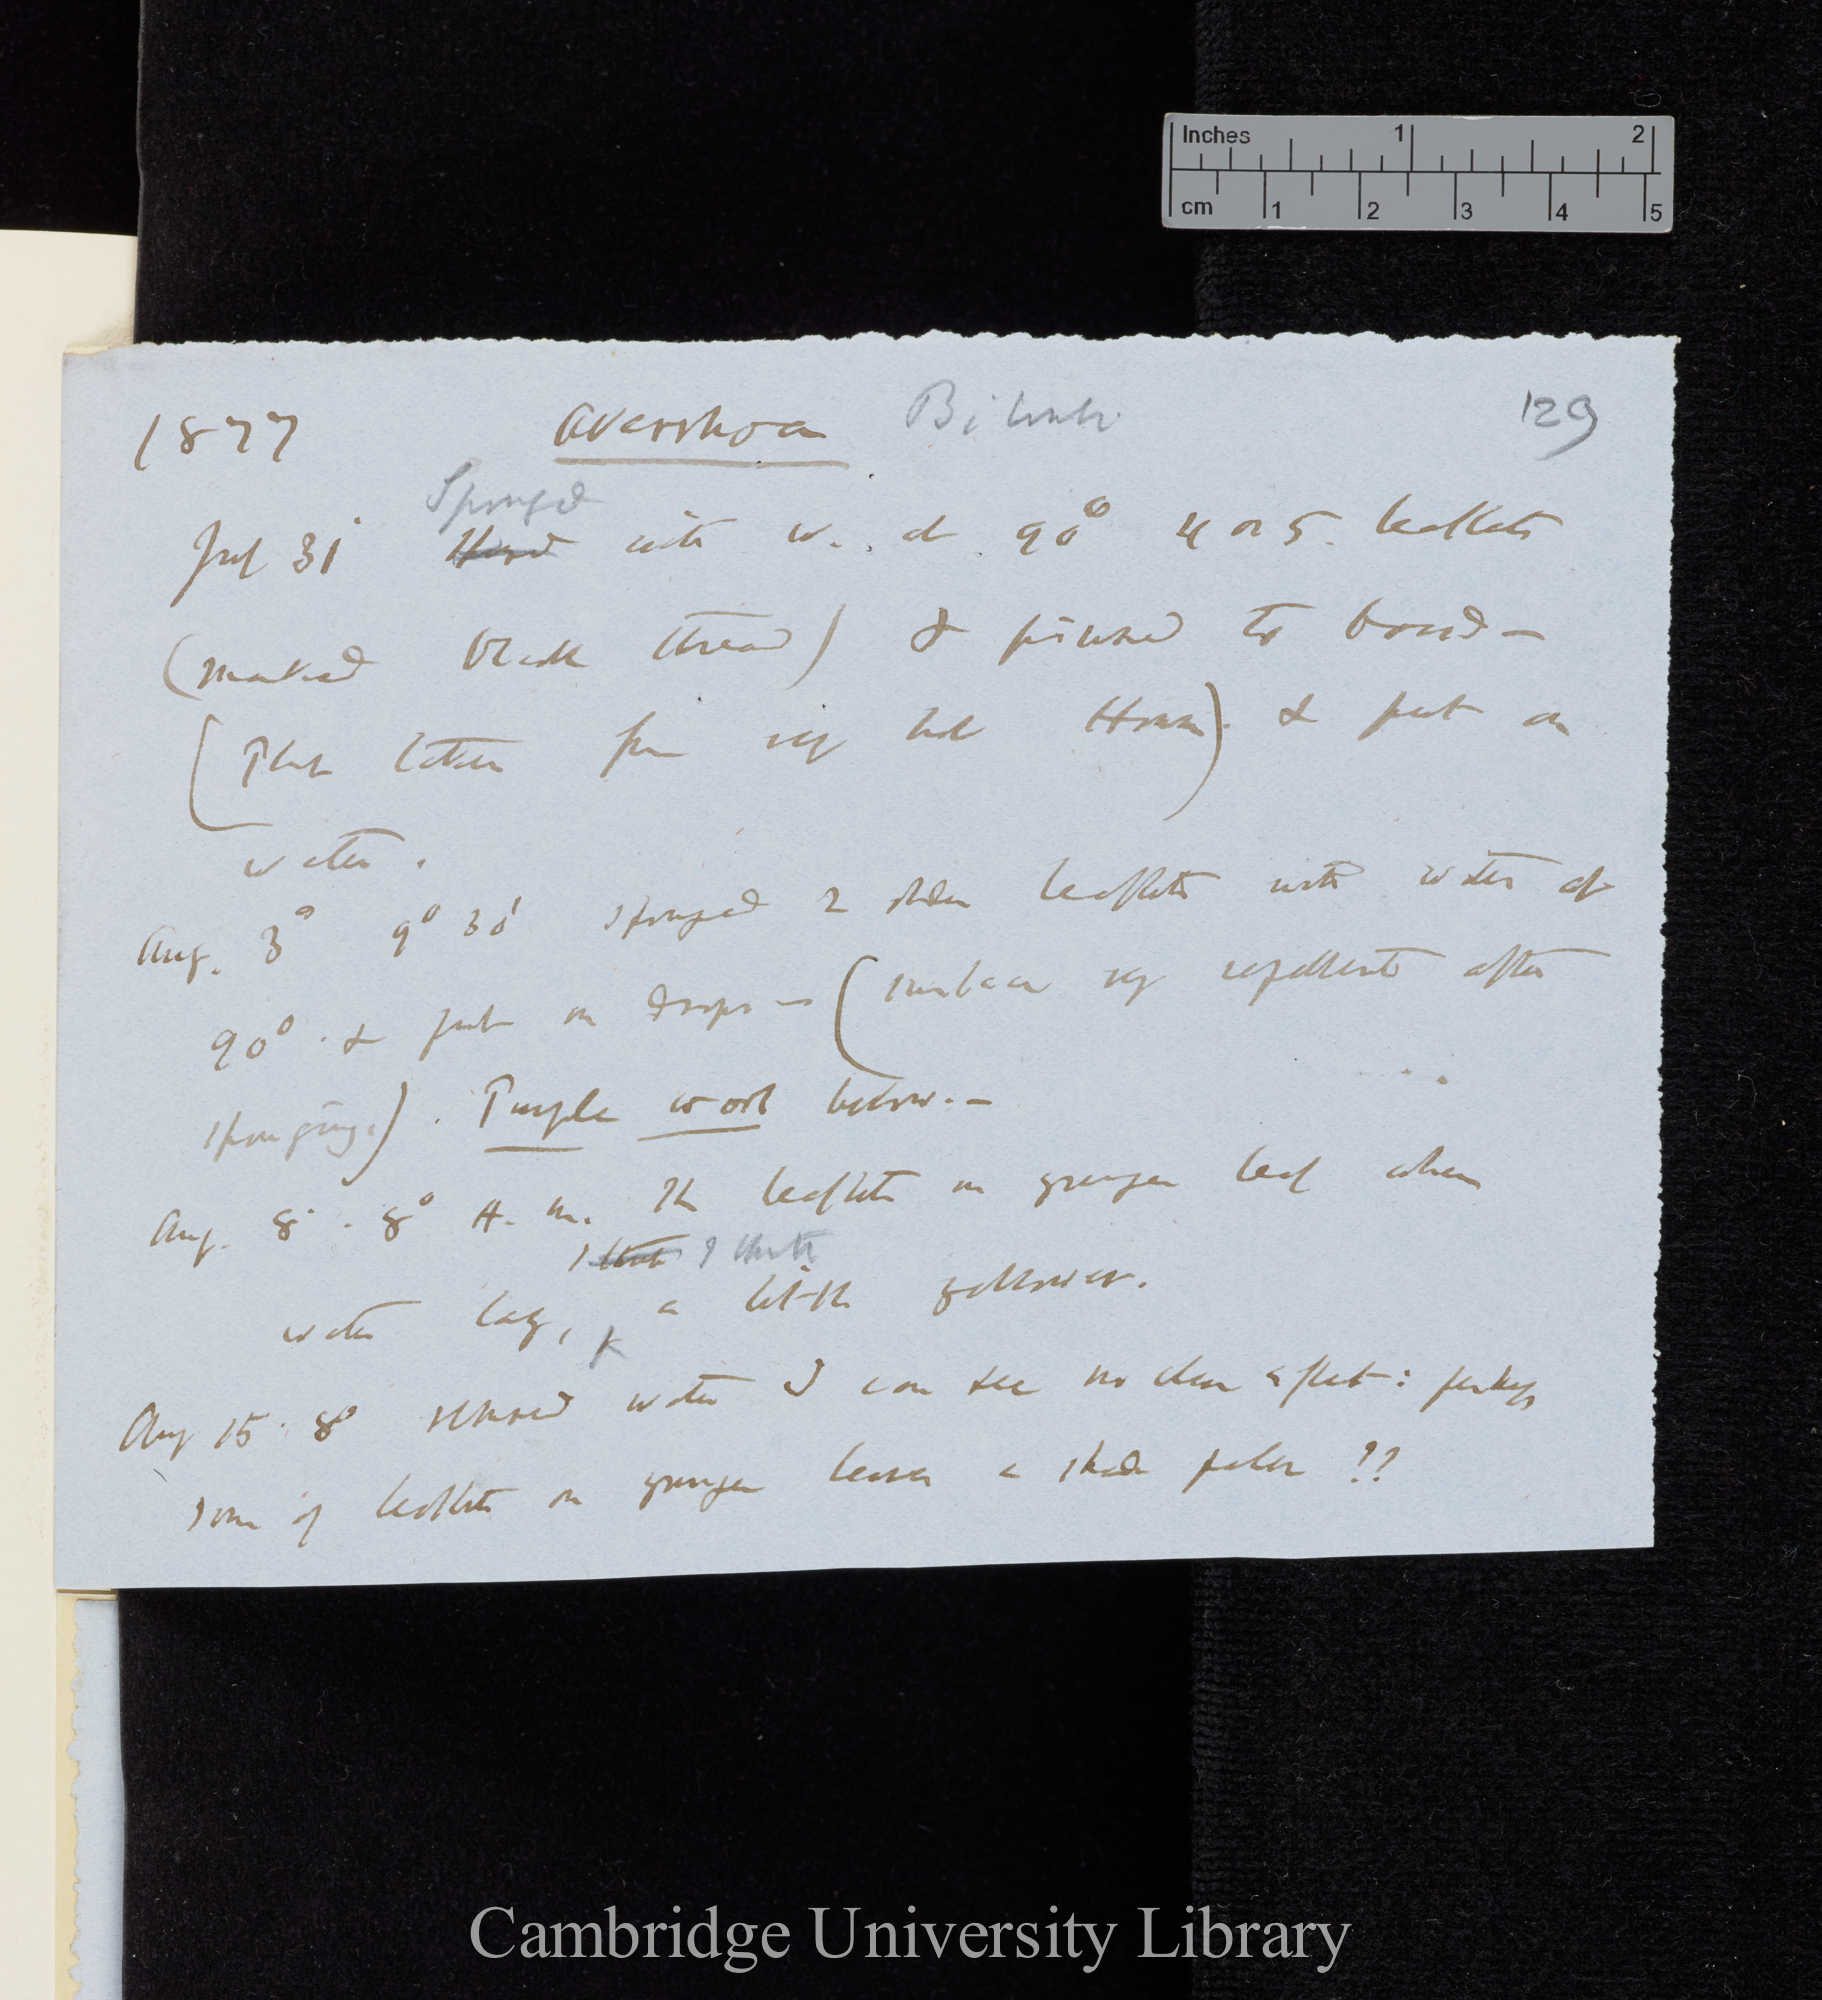 Inches 1 2
cm 1 2 3 4 5
1877 Averrhoa Bilimbi 129
Sponged
July 31 with w. at 90° 4 or 5 leaflets
(marked black thread) & pinned to board —
(Plant taken from very hot House) & put on
water.
Aug. 3° 9° 30' sponged 2 older leaflets with water at
90° & put on drops — (surface very repellent after
sponging). Purple wool below. —
Aug. 8 . 8° A. m. The leaflets on younger leaf where
I think I think
water lay, a little yellower.
Aug 15 . 8° removed water I can see no clear effect: perhaps
some of leaflets on younger leaves a shade paler ??
Cambridge University Library